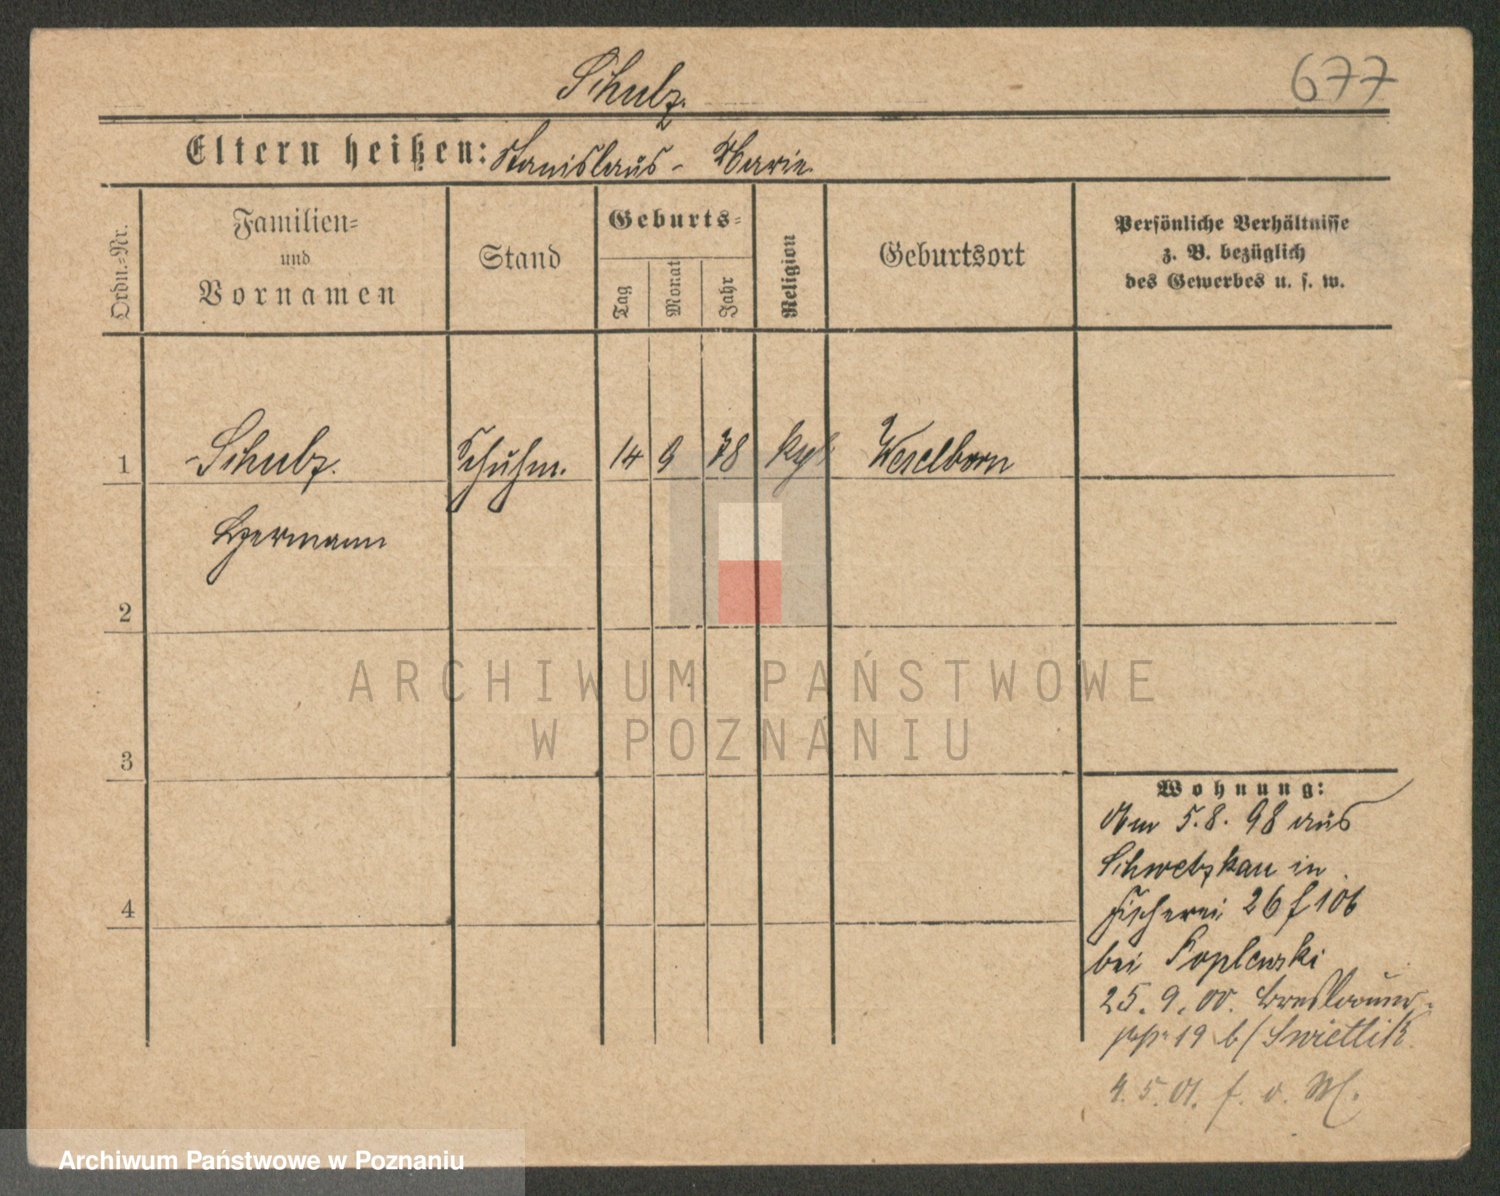 Schulz.
677
Eltern heißen: Stanislaus - Marie
Ordn.=Nr.
Familien=
und
Vornamen
Stand
Geburts=
Tag
Monat
Jahr
Religion
Geburtsort
Persönliche Verhältnisse
z. B. bezüglich
des Gewerbes u. s. w.
1
Schulz.
Schuhm.
14
9
78
Weselborn
Hermann
2
3
4
ARCHIWUM PAŃSTWOWE
W POZNANIU
Wohnung:
Am 5. 8. 98 aus
Schwetzkau in
Fischerei 26
bei
25. 9. 00. Breslauer
19 b/ Swietlik
4. 5. 01. f. v. M.
Archiwum Państwowe w Poznaniu